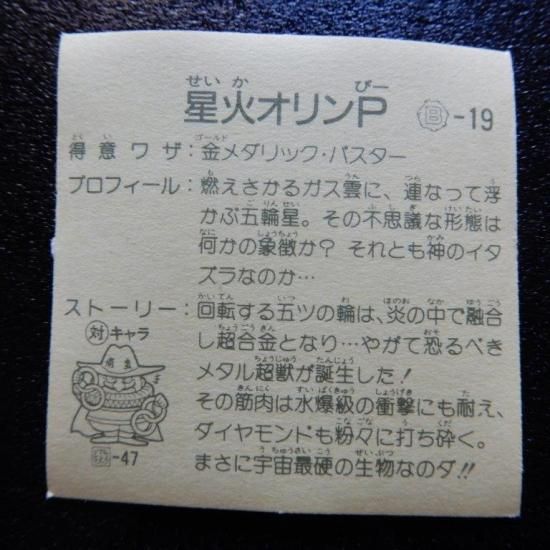 星火オリンP Ⓑ-19
得意ワザ：金メダリック・バスター
プロフィール：燃えさかるガス雲に、連なって浮
かぶ五輪星。その不思議な形態は
何かの象徴か？ それとも神のイタ
ズラなのか…
ストーリー：回転する五ツの輪は、炎の中で融合
し超合金となり…やがて恐るべき
メタル超獣が誕生した！
その筋肉は水爆級の衝撃にも耐え、
ダイヤモンドも粉々に打ち砕く。
まさに宇宙最硬の生物なのダ!!
対キャラ
-47